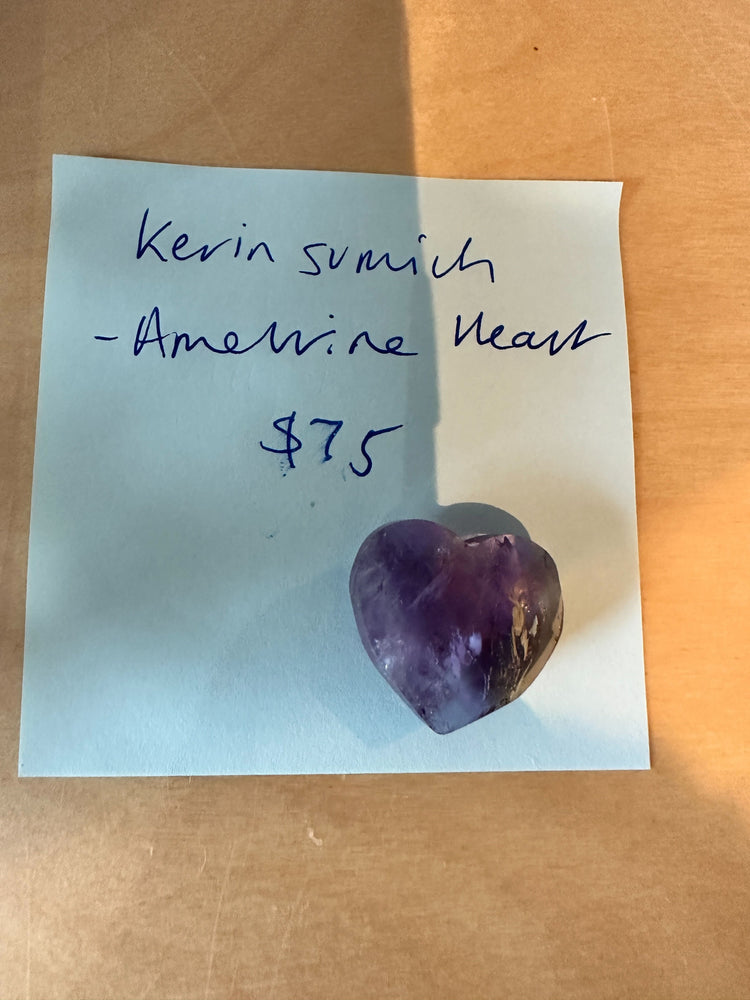 Kevin Sumich
- Ametrine Heart
$75